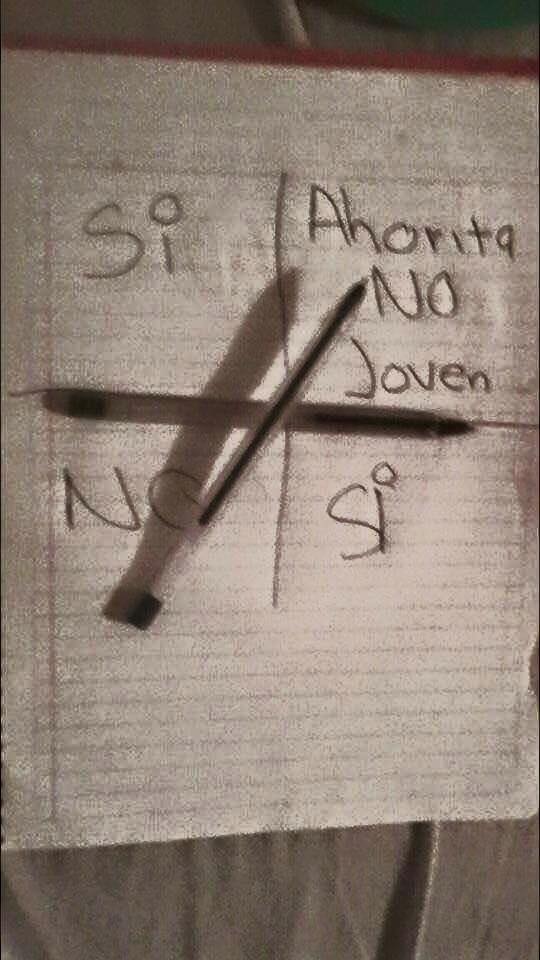 Si
Ahorita
NO
Joven
NO
Si